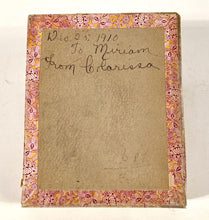 Dec 25 1910
To Miriam
From Clarissa